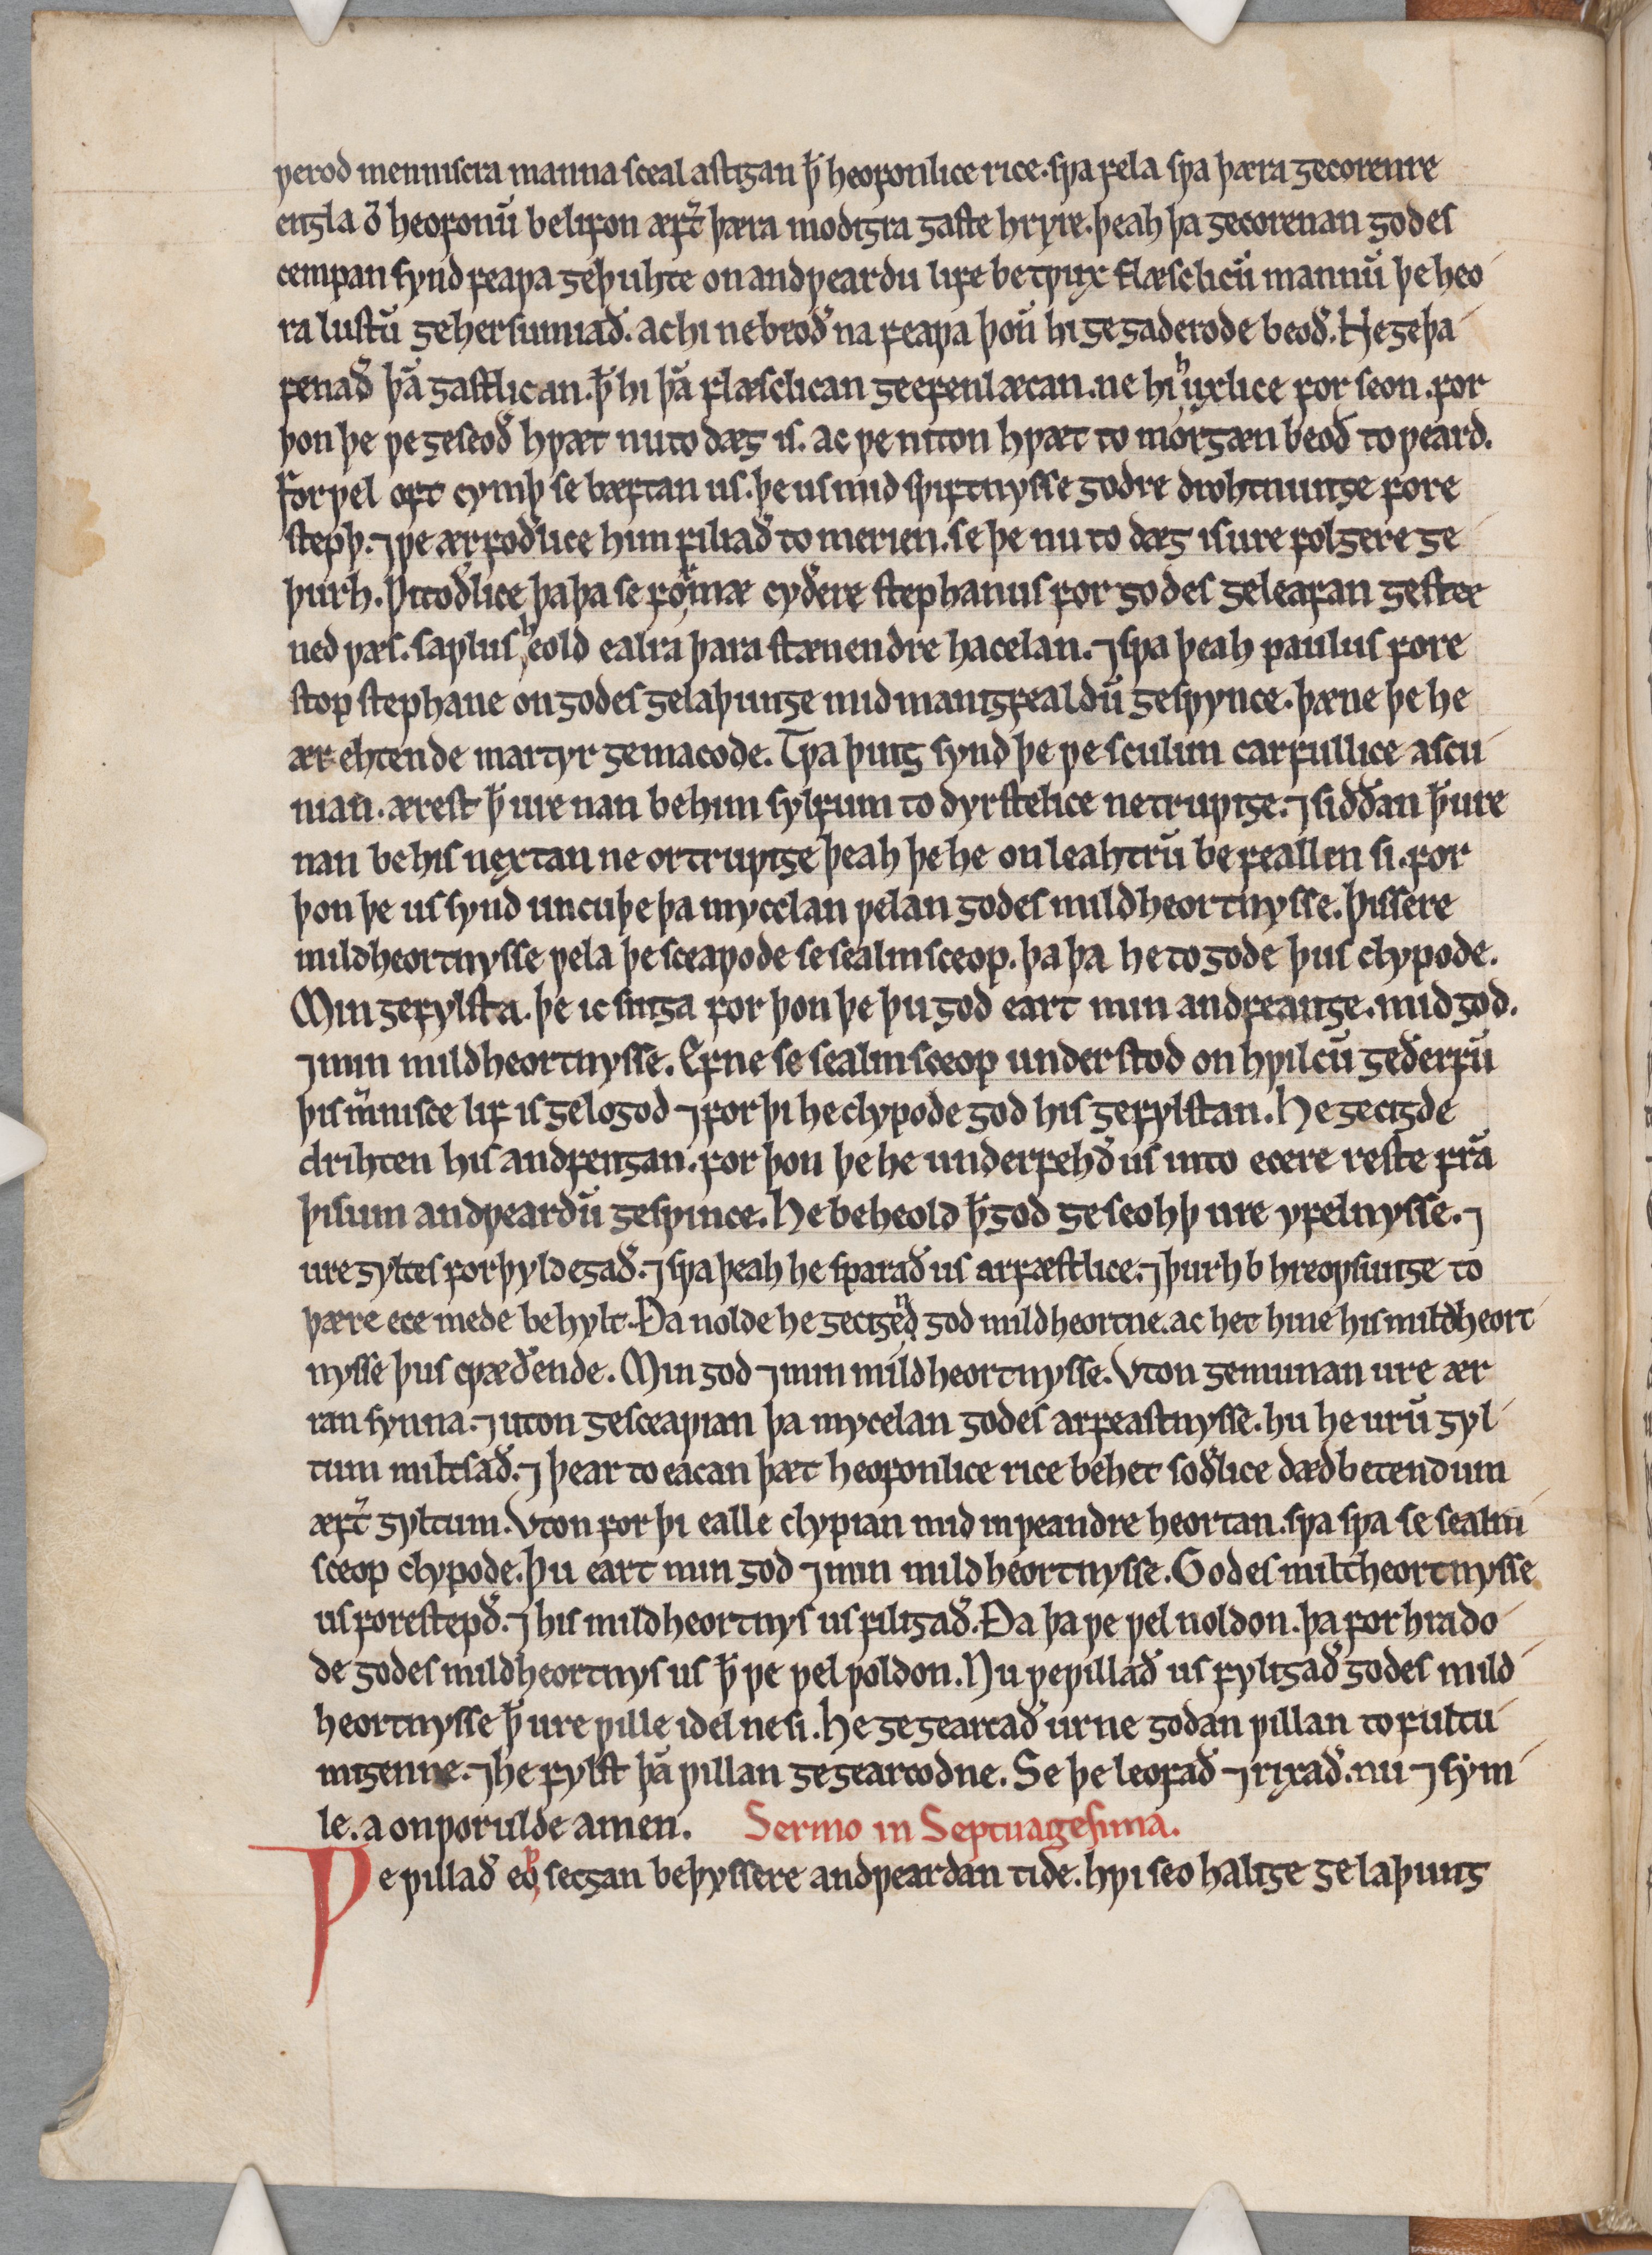 ƿerod menniscra manna sceal astigan ꝥ heofonlice rice. sƿa fela sƿa þæra gecorenre
engla oꝺ̄ heofonū belifon æft̄ þæra modigra gaste hryre. þeah þa gecorenan godes
cempan synd feaƿa geþuhte on andƿeardu life betƿux flæsclicū mannū þe heo
ra lustū gehersumiað. ac hi ne beoð na feaƿa þoṅ hi gegaderode beoð. Ne geþa
fenað þā gastlican. ꝥ hi þā flæsclican geefenlæcan. ne hi huxlice for seon. for
þon þe ƿe geseoð hƿæt nu to dæg is. ac ƿe niton hƿæt to morgæn beoð toƿeard.
for ƿel oft cymþ se bæftan us. þe us mid sƿiftnysse godre drohtnunge fore
stepþ. ⁊ ƿe ærfoðlice him filiað to merien. se þe nu to dæg is ure folgere ge
þurh. Ƿitoðlice þa þa se formæ cyðere stephanus for godes geleafan gestæ
ned ƿæs. saplus heold ealra þara stænendre hacelan. ⁊ sƿa þeah paulus fore
stop stephane on godes gelaþunge mid manigfealdū gesƿynce. þæne þe he
ær ehtende martyr gemacode. Tƿa þing synd þe ƿe sculun carfullice ascu
nian. ærest ꝥ ure nan be him sylfum to dyrstelice ne truƿige. ⁊ siððan ꝥ ure
nan be his nextan ne ortruƿige þeah þe he on leahtrū befeallen si. for
þon þe us synd uncuþe þa mycelan ƿelan godes mildheortnysse. Þissere
mildheortnysse ƿela þe sceaƿode se sealmsceop. þa þa he to gode þus clypode.
Min gefylsta. þe ic singa for þon þe þu god eart min andfeange. mid god.
⁊ min mildheortnysse. Efne se sealmsceop understod on hƿilcū gedeorfū
þis m̄nisce lif is gelogod ⁊ for þi he clypode god his gefylstan. He gecigde
drihten his andfengan. for þon þe he underfehð us into ecere reste frā
þisum andƿeardū gesƿince. He beheold ꝥ god geseohþ ure yfelnysse. ⁊
ure gyltes forþyldegað. ⁊ sƿa þeah he sparað us arfæstlice. ⁊ þurh b hreoƿsunge to
þære ece mede behylt. Ða nolde he gecigend god mildheortne. ac het hine his mildheort
nysse þus cƿæðende. Min god ⁊ min mildheortnysse. Uton gemunan ure ær
ran synna. ⁊ uton gesceaƿian þa mycelan godes arfeastnysse. hu he urū gyl
tum miltsað. ⁊ þear to eacan þæt heofonlice rice behet soðlice dædbetendum
æft̄ gyltum. Uton for þi ealle clypian mid inƿeandre heortan. sƿa sƿa se sealm
sceop clypode. þu eart min god ⁊ min mildheortnysse. Godes miltheortnysse
us forestepð. ⁊ his mildheortnys us filigað. Ða þa ƿe ƿel noldon. þa forhrado
de godes mildheortnys us ꝥ ƿe ƿel ƿoldon. Nu ƿe ƿillað us fyligað godes mild
heortnysse ꝥ ure ƿille idel ne si. He gegearcað urne godan ƿillan to fultu
migenne. ⁊ he fylst þā ƿillan gegearcodne. Se þe leofað ⁊ rixað. nu ⁊ sym
le. a on ƿorulde amen. Sermo in Septuagesima.
Ƿe ƿillað eoƿ secgan be þyssere andƿeardan tide. hƿi seo halige gelaþung